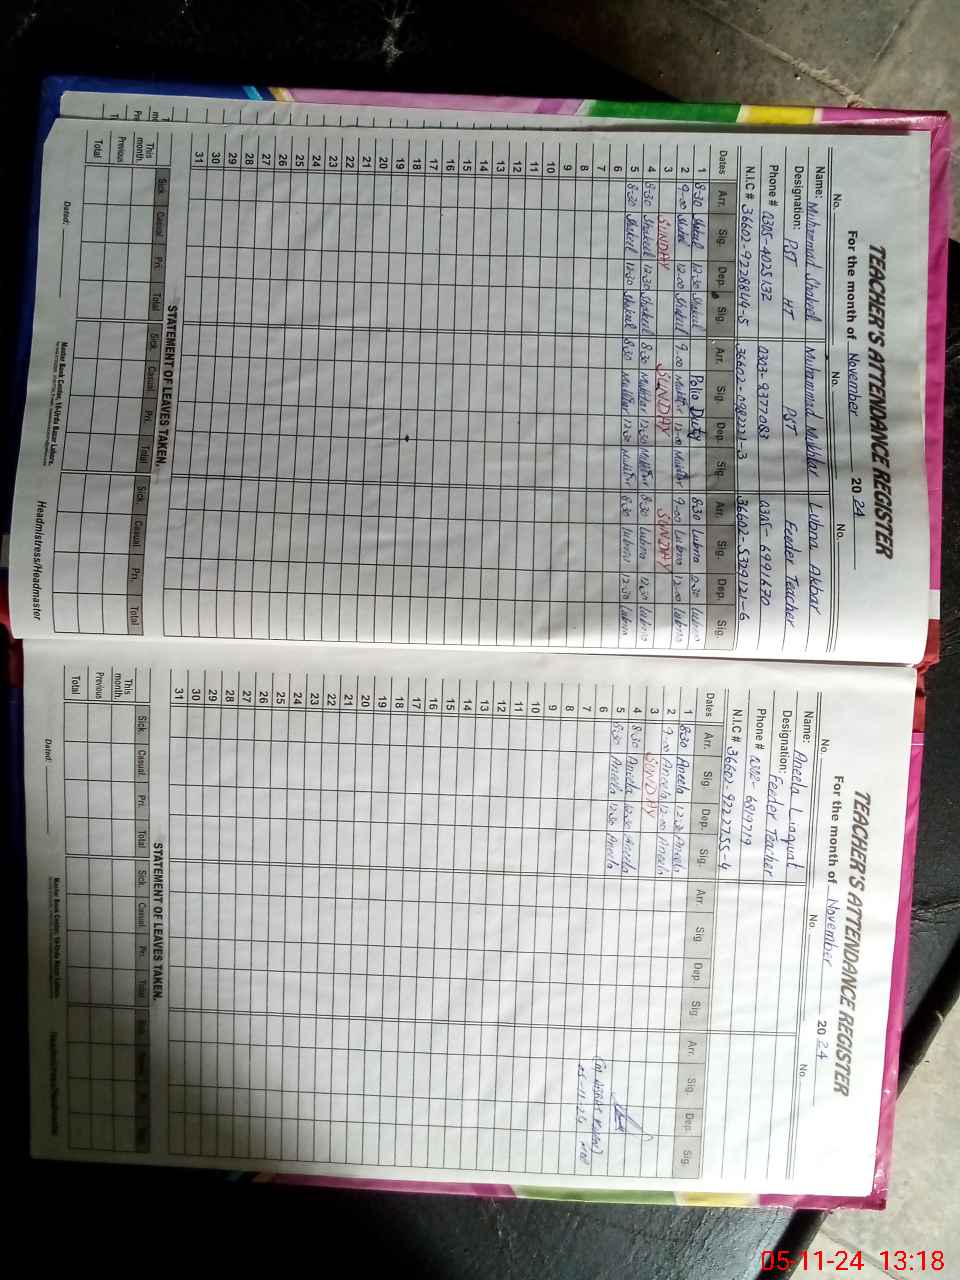 TEACHER'S ATTENDANCE REGISTER
For the month of November 2024
No. No. No.
Name: Muhammad Shakeel Muhammad Mukhtar Lubna Akbar
Designation: PST HT PST Feeder Teacher
Phone # 0305-4025132 0303-9377083 0305-6991670
N.I.C # 36602-9228844-5 36602-0982221-3 36602-5329121-6
Dates Arr. Sig. Dep. Sig. Arr. Sig. Dep. Sig. Arr. Sig. Dep. Sig.
1 8:30 Shakeel 12:30 Shakeel Polio Duty 8:30 Lubna Lubna
2 9:00 Shakeel 12:00 Shakeel 9:00 Mukhtar 12:00 Mukhtar 9:00 Lubna 12:00 Lubna
3 SUNDAY SUNDAY SUNDAY
4 8:30 Shakeel 12:30 Shakeel 8:30 Mukhtar 12:30 Mukhtar 8:30 Lubna 12:30 Lubna
5 8:30 Shakeel 12:30 Shakeel 8:30 Mukhtar 12:30 Mukhtar 8:30 Lubna 12:30 Lubna
6
7
8
9
10
11
12
13
14
15
16
17
18
19
20
21
22
23
24
25
26
27
28
29
30
31
STATEMENT OF LEAVES TAKEN.
Sick. Casual. Pri. Total Sick. Casual. Pri. Total Sick. Casual. Pri. Total
This month.
Previous
Total
Dated:
Master Book Center, 14-Urdu Bazar Lahore.
Headmistress/Headmaster
TEACHER'S ATTENDANCE REGISTER
For the month of November 2024
No. No. No.
Name: Aneela Liaquat
Designation: Feeder Teacher
Phone # 6819719
N.I.C # 36602-9227755-4
Dates Arr. Sig. Dep. Sig. Arr. Sig. Dep. Sig. Arr. Sig. Dep. Sig.
1 8:30 Aneela 12:30 Aneela
2 9:00 Aneela 12:00 Aneela
3 SUNDAY
4 8:30 Aneela 12:30 Aneela
5 8:30 Aneela 12:30 Aneela
6
7 05-11-24
8
9
10
11
12
13
14
15
16
17
18
19
20
21
22
23
24
25
26
27
28
29
30
31
STATEMENT OF LEAVES TAKEN.
Sick. Casual. Pri. Total Sick. Casual. Pri. Total
This month.
Previous
Total
Dated:
Master Book Center, 14-Urdu Bazar Lahore.
Headmistress/Headmaster
05-11-24 13:18